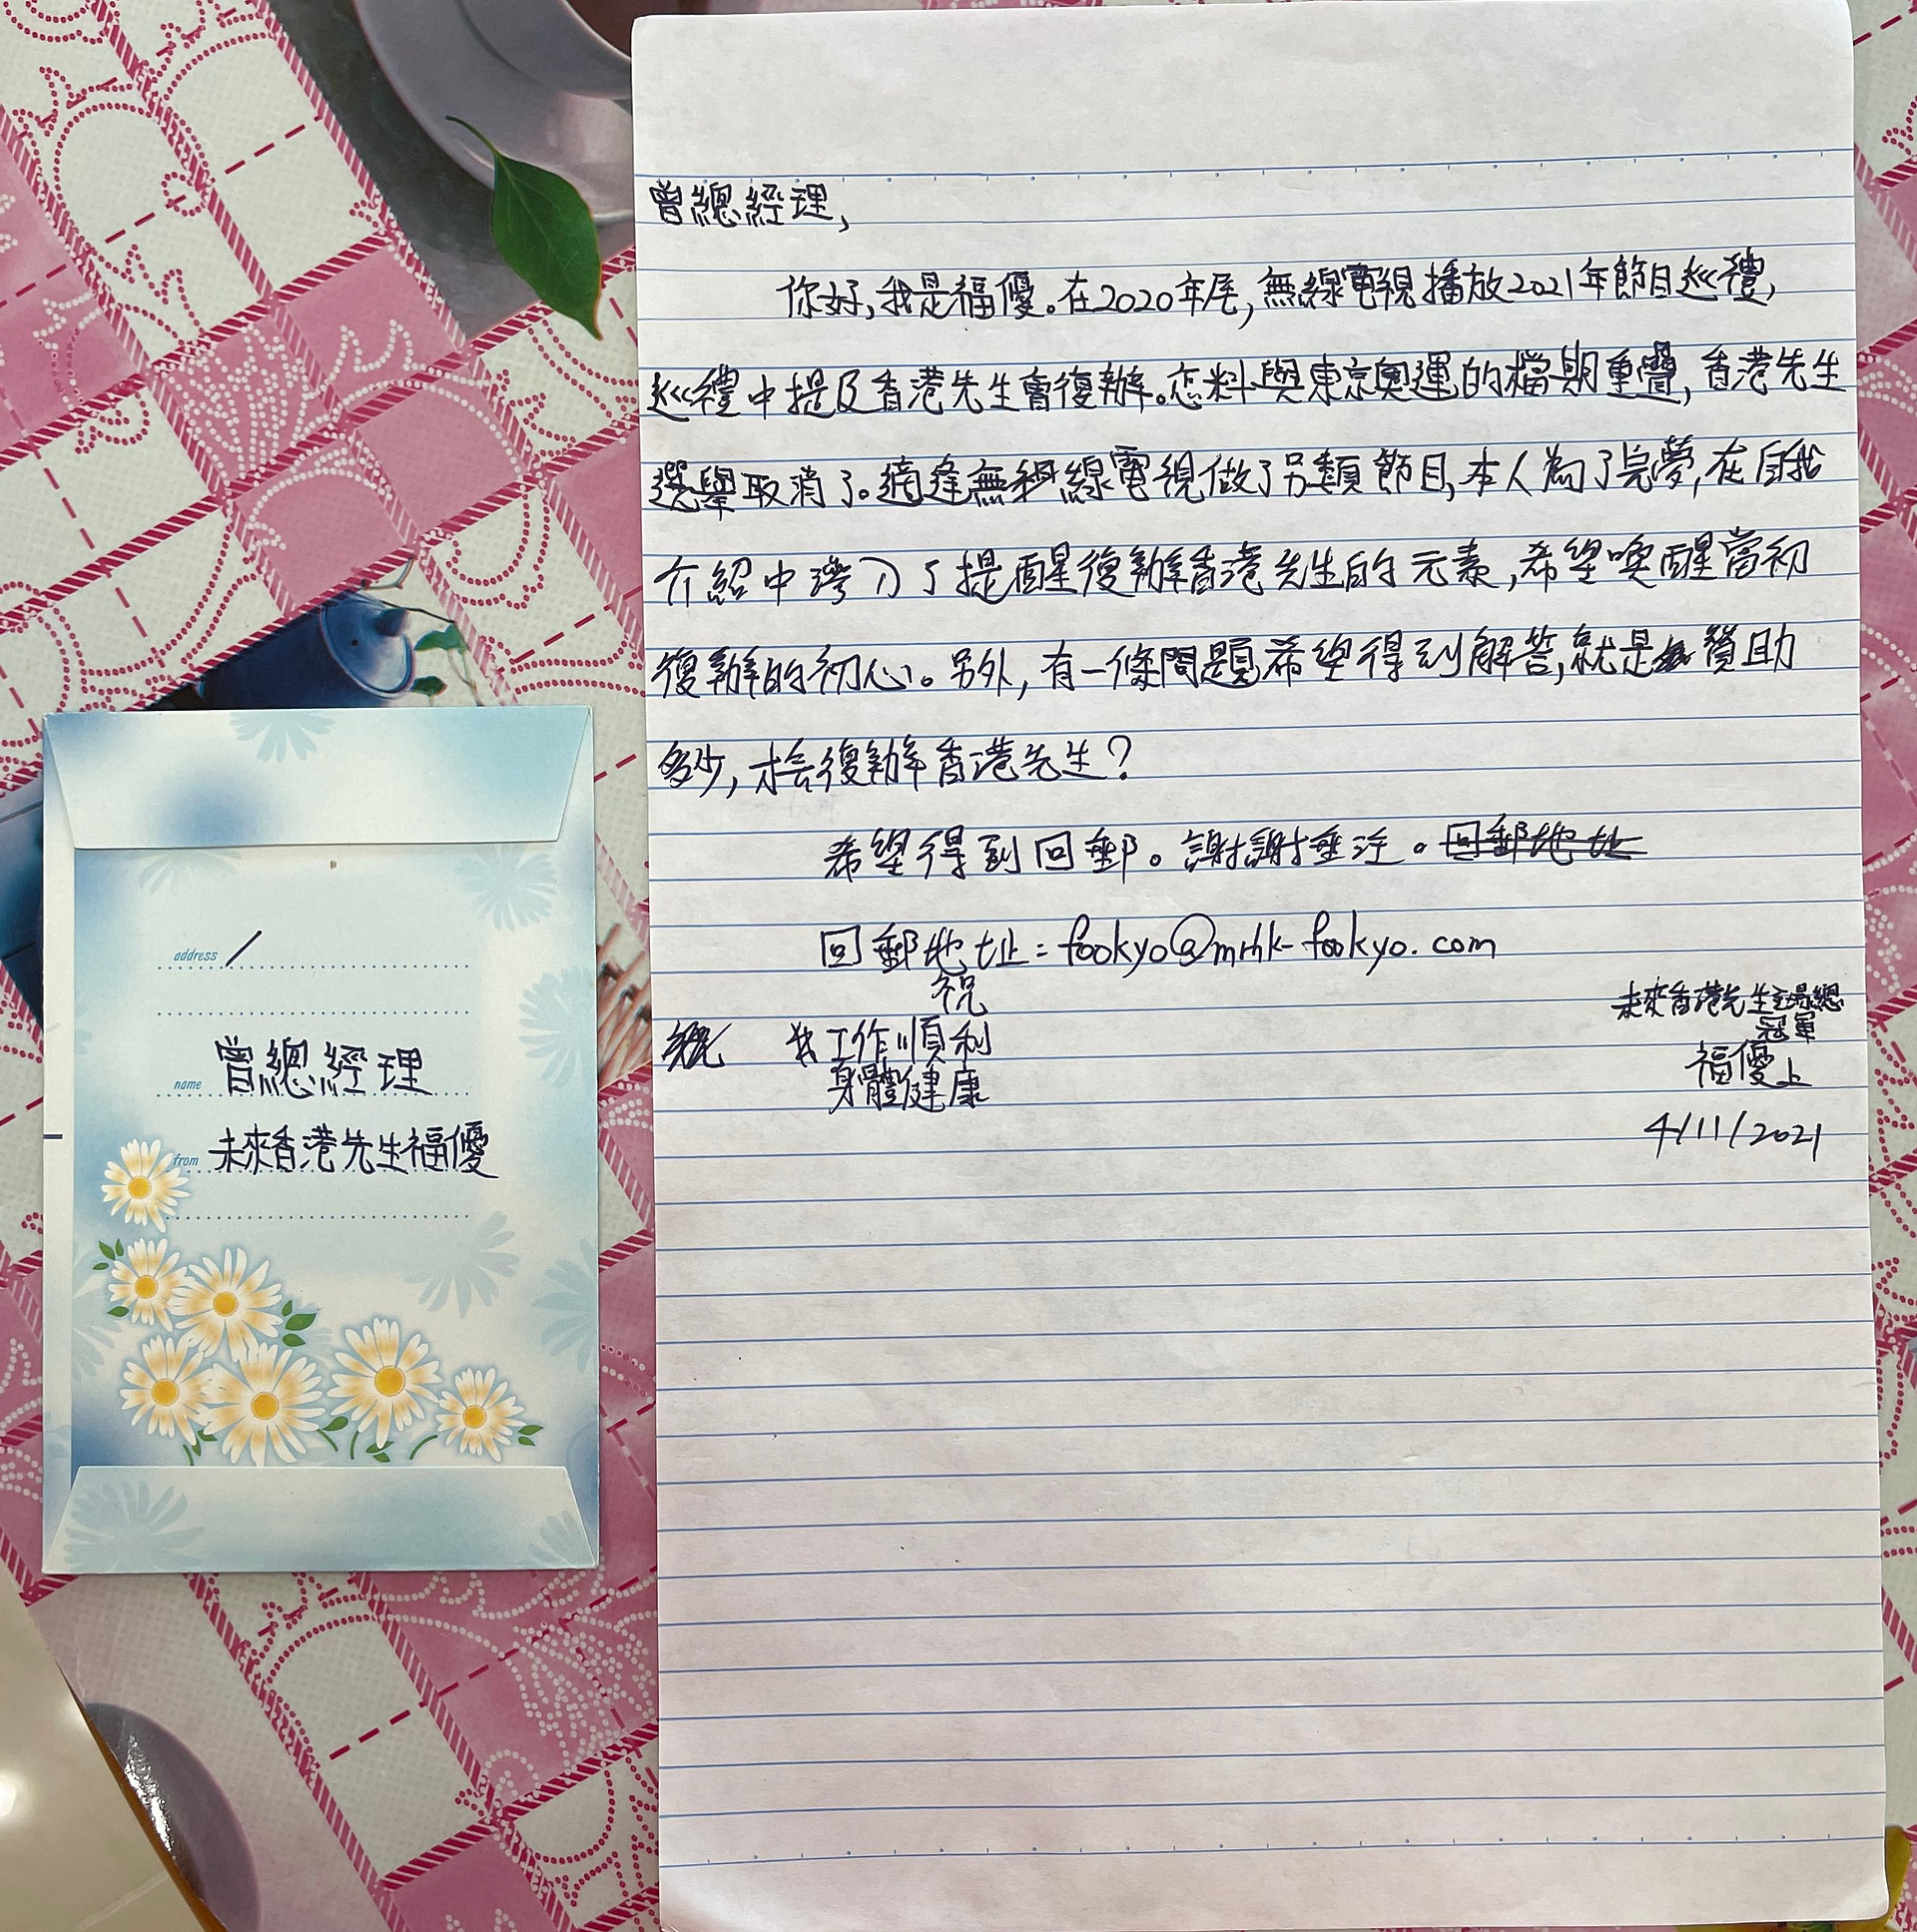 曾總經理,
你好,我是福優。在2020年尾,無線電視播放2021年節目巡禮,
巡禮中提及香港先生會復辦。怎料與東京奧運的檔期重疊,香港先生
選舉取消了。適逢無線電視做了另類節目,本人為了完夢,在自我
介紹中滲入了提醒復辦香港先生的元素,希望喚醒當初
復辦的初心。另外,有一條問題希望得到解答,就是贊助
多少,才會復辦香港先生?
希望得到回郵。謝謝垂注。回郵地址
回郵地址:fookyo@mrhk-fookyo.com
祝
工作順利
身體健康
未來香港先生
冠軍
福優上
4/11/2021
address /
name 曾總經理
from 未來香港先生福優